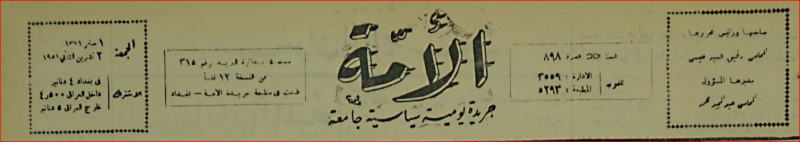 صاحبها ورئيس تحريرها
المحامي رفيق السيد عيسى
مديرها المسؤول
المحامي عبد المجيد محمد
السنة العدد ٨٩٨
تلفون
الادارة : ٣٥٥٩
المطبعة : ٥٢٩٣
الامّة
جريدة يومية سياسية جامعة
دائرة البريد رقم ٣١٥
ثمن النسخة ١٢ فلساً
طبعت في مطبعة جريدة الامة – بغداد
الجمعة
١ صفر ١٣٧١
٢ تشرين الثاني ١٩٥١
الاشتراك
في بغداد ٤ دنانير
داخل العراق ٤٫٥٠٠
خارج العراق ٥ دنانير